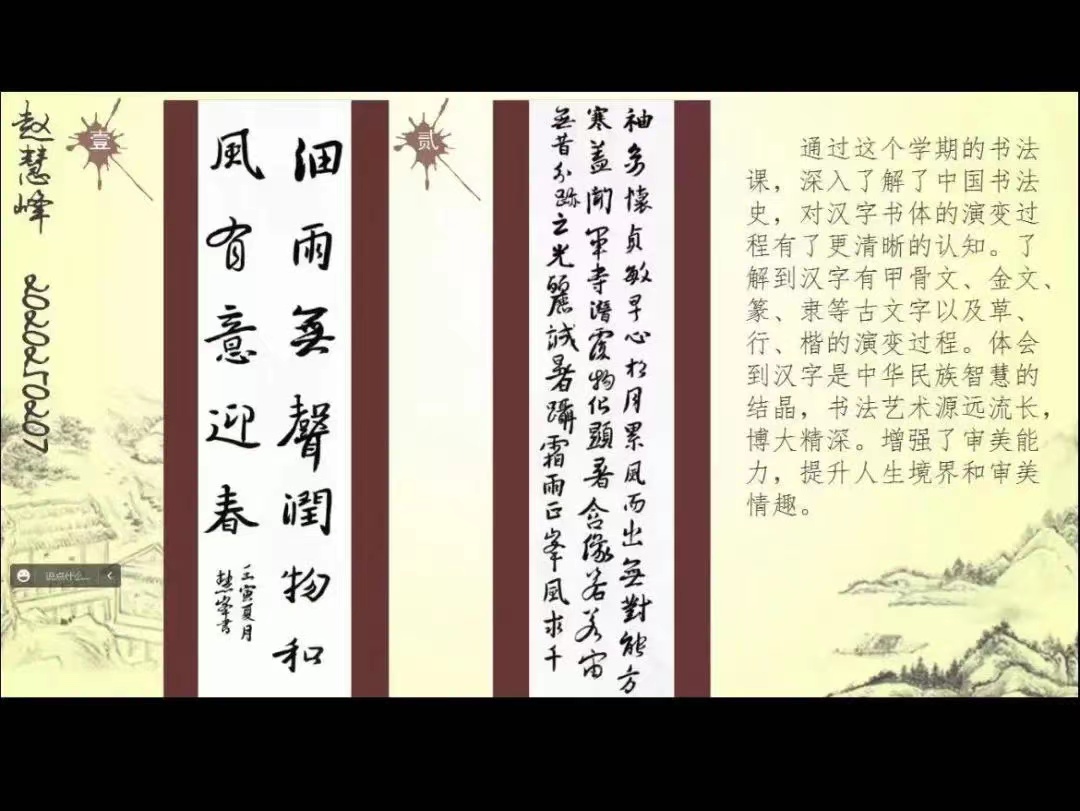 赵慧峰
20202150207
壹
細雨無聲潤物和
風有意迎春
壬寅夏月
慧峰書
贰
懷貞敏早心松月累風而出無對能方
寒盖潛物化顯暑含像若宙
無昔分跡之光麗誠暑躡霜雨正峯風求千
通过这个学期的书法
课，深入了解了中国书法
史，对汉字书体的演变过
程有了更清晰的认知。了
解到汉字有甲骨文、金文、
篆、隶等古文字以及草、
行、楷的演变过程。体会
到汉字是中华民族智慧的
结晶，书法艺术源远流长，
博大精深。增强了审美能
力，提升人生境界和审美
情趣。
说点什么...